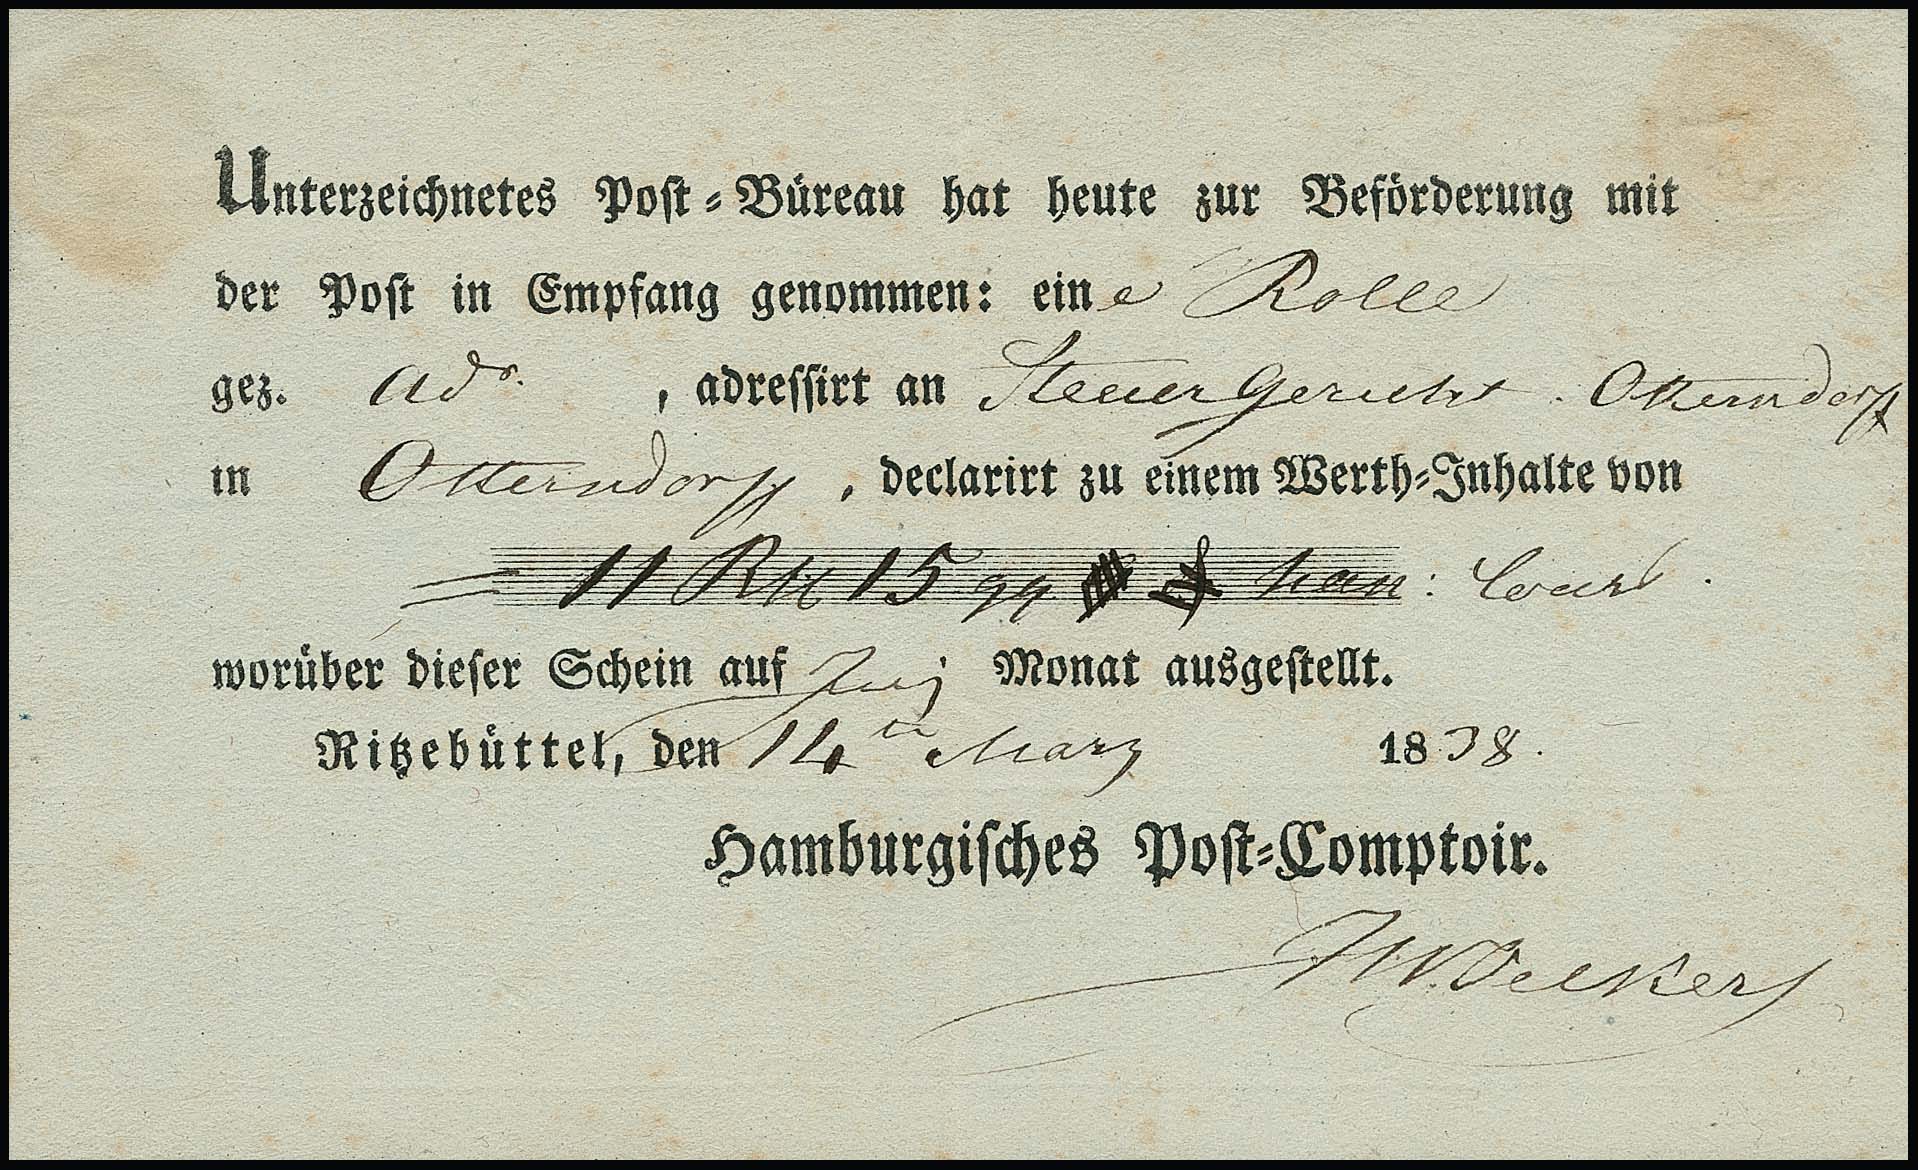 Unterzeichnetes Post-Büreau hat heute zur Beförderung mit
der Post in Empfang genommen: eine Rolle
gez. adr. , adressirt an Steuer Gericht Otterndorff
in Otterndorff , declarirt zu einem Werth-Inhalte von
11 15 gg han: Cour
worüber dieser Schein auf Monat ausgestellt.
Ritzebüttel, den 14 März 1838.
Hamburgisches Post-Comptoir.